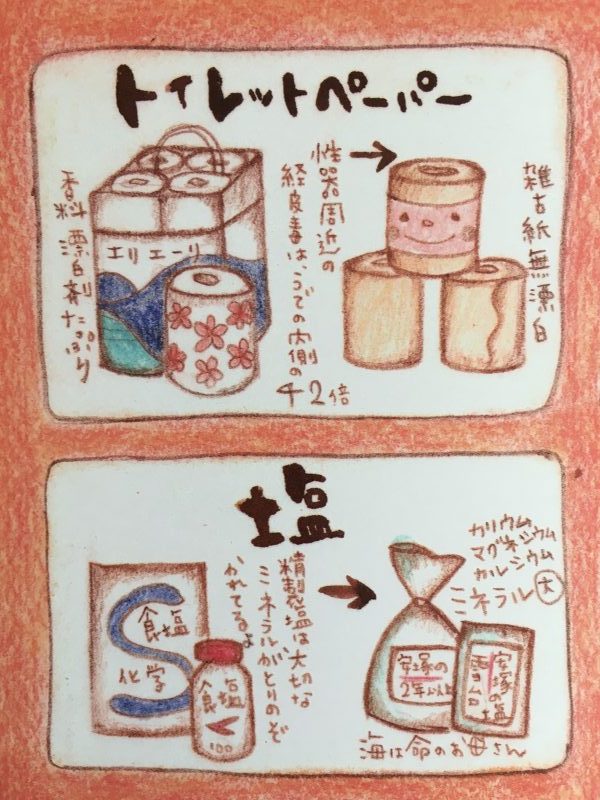 トイレットペーパー
香料 漂白剤 たっぷり
エリエーリ
性器周近の
経皮毒は、うでの内側の
42倍
雑古紙無漂白
塩
食塩
化学
食塩
100
精製塩は大切な
ミネラルがとりのぞ
かれてるよ
カリウム
マグネシウム
カルシウム
ミネラル 大
2年以上
海は命のお母さん